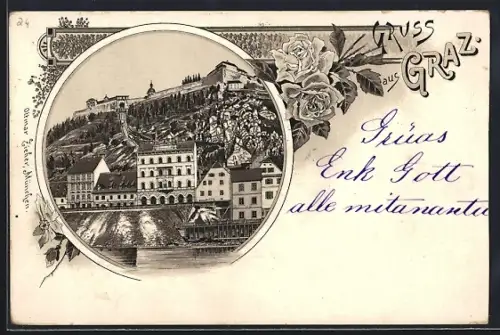 24
GRUSS
aus GRAZ.
Grüas
Enk Gott
alle mitanantu
Ottmar Zieher, München.